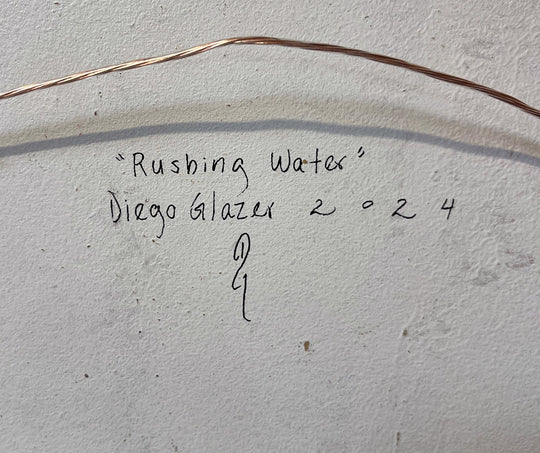 "Rushing Water"
Diego Glazer 2024